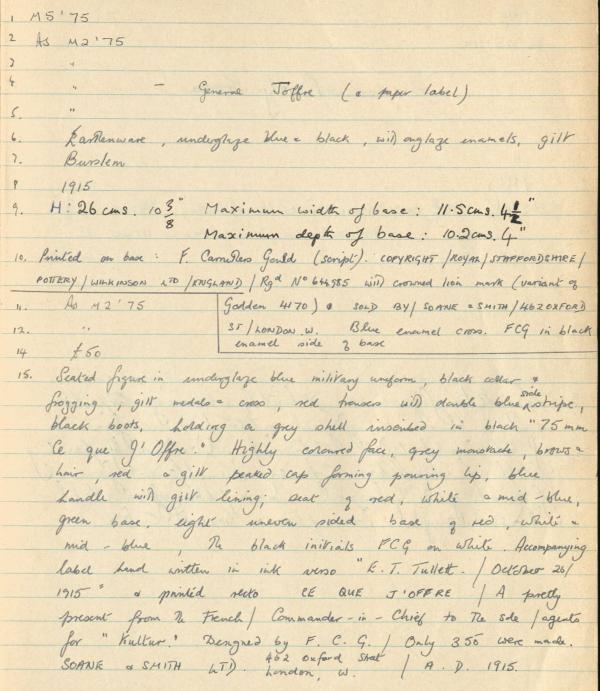 1 M5 '75
2 As M2 '75
3 "
4 " — General Joffre (& paper label)
5. "
6. Earthenware, underglaze blue & black, with onglaze enamels, gilt
7. Burslem
8 1915
9. H: 26 cms. 10 3/8" Maximum width of base: 11.5cms. 4 1/2"
Maximum depth of base: 10.2cms. 4"
10. Printed on base: F. Carruthers Gould (script). COPYRIGHT/ROYAL/STAFFORDSHIRE/
POTTERY/WILKINSON LTD/ENGLAND/Rgd No 644985 with crowned lion mark (variant of
11. As M2 '75 Godden 4170) & SOLD BY/SOANE & SMITH/462 OXFORD
12. " ST/LONDON.W. Blue enamel cross. FCG in black
enamel side of base
14 £60
15. Seated figure in underglaze blue military uniform, black collar &
frogging, gilt medals & cross, red trousers with double blue side stripe,
black boots, holding a grey shell inscribed in black "75 mm
Ce que J'Offre." Highly coloured face, grey moustache, brows &
hair, red & gilt peaked cap forming pouring lip, blue
handle with gilt lining; seat of red, white & mid-blue,
green base. Eight uneven sided base of red, white &
mid-blue, The black initials FCG on white. Accompanying
label hand written in ink verso "E.T. Tullett. / October 26/
1915" & printed recto CE QUE J'OFFRE / A pretty
present from The French / Commander-in-Chief to The sole / agents
for "Kultur." Designed by F.C.G. / Only 350 were made.
SOANE & SMITH LTD. 462 Oxford Street London, W. / A.D. 1915.